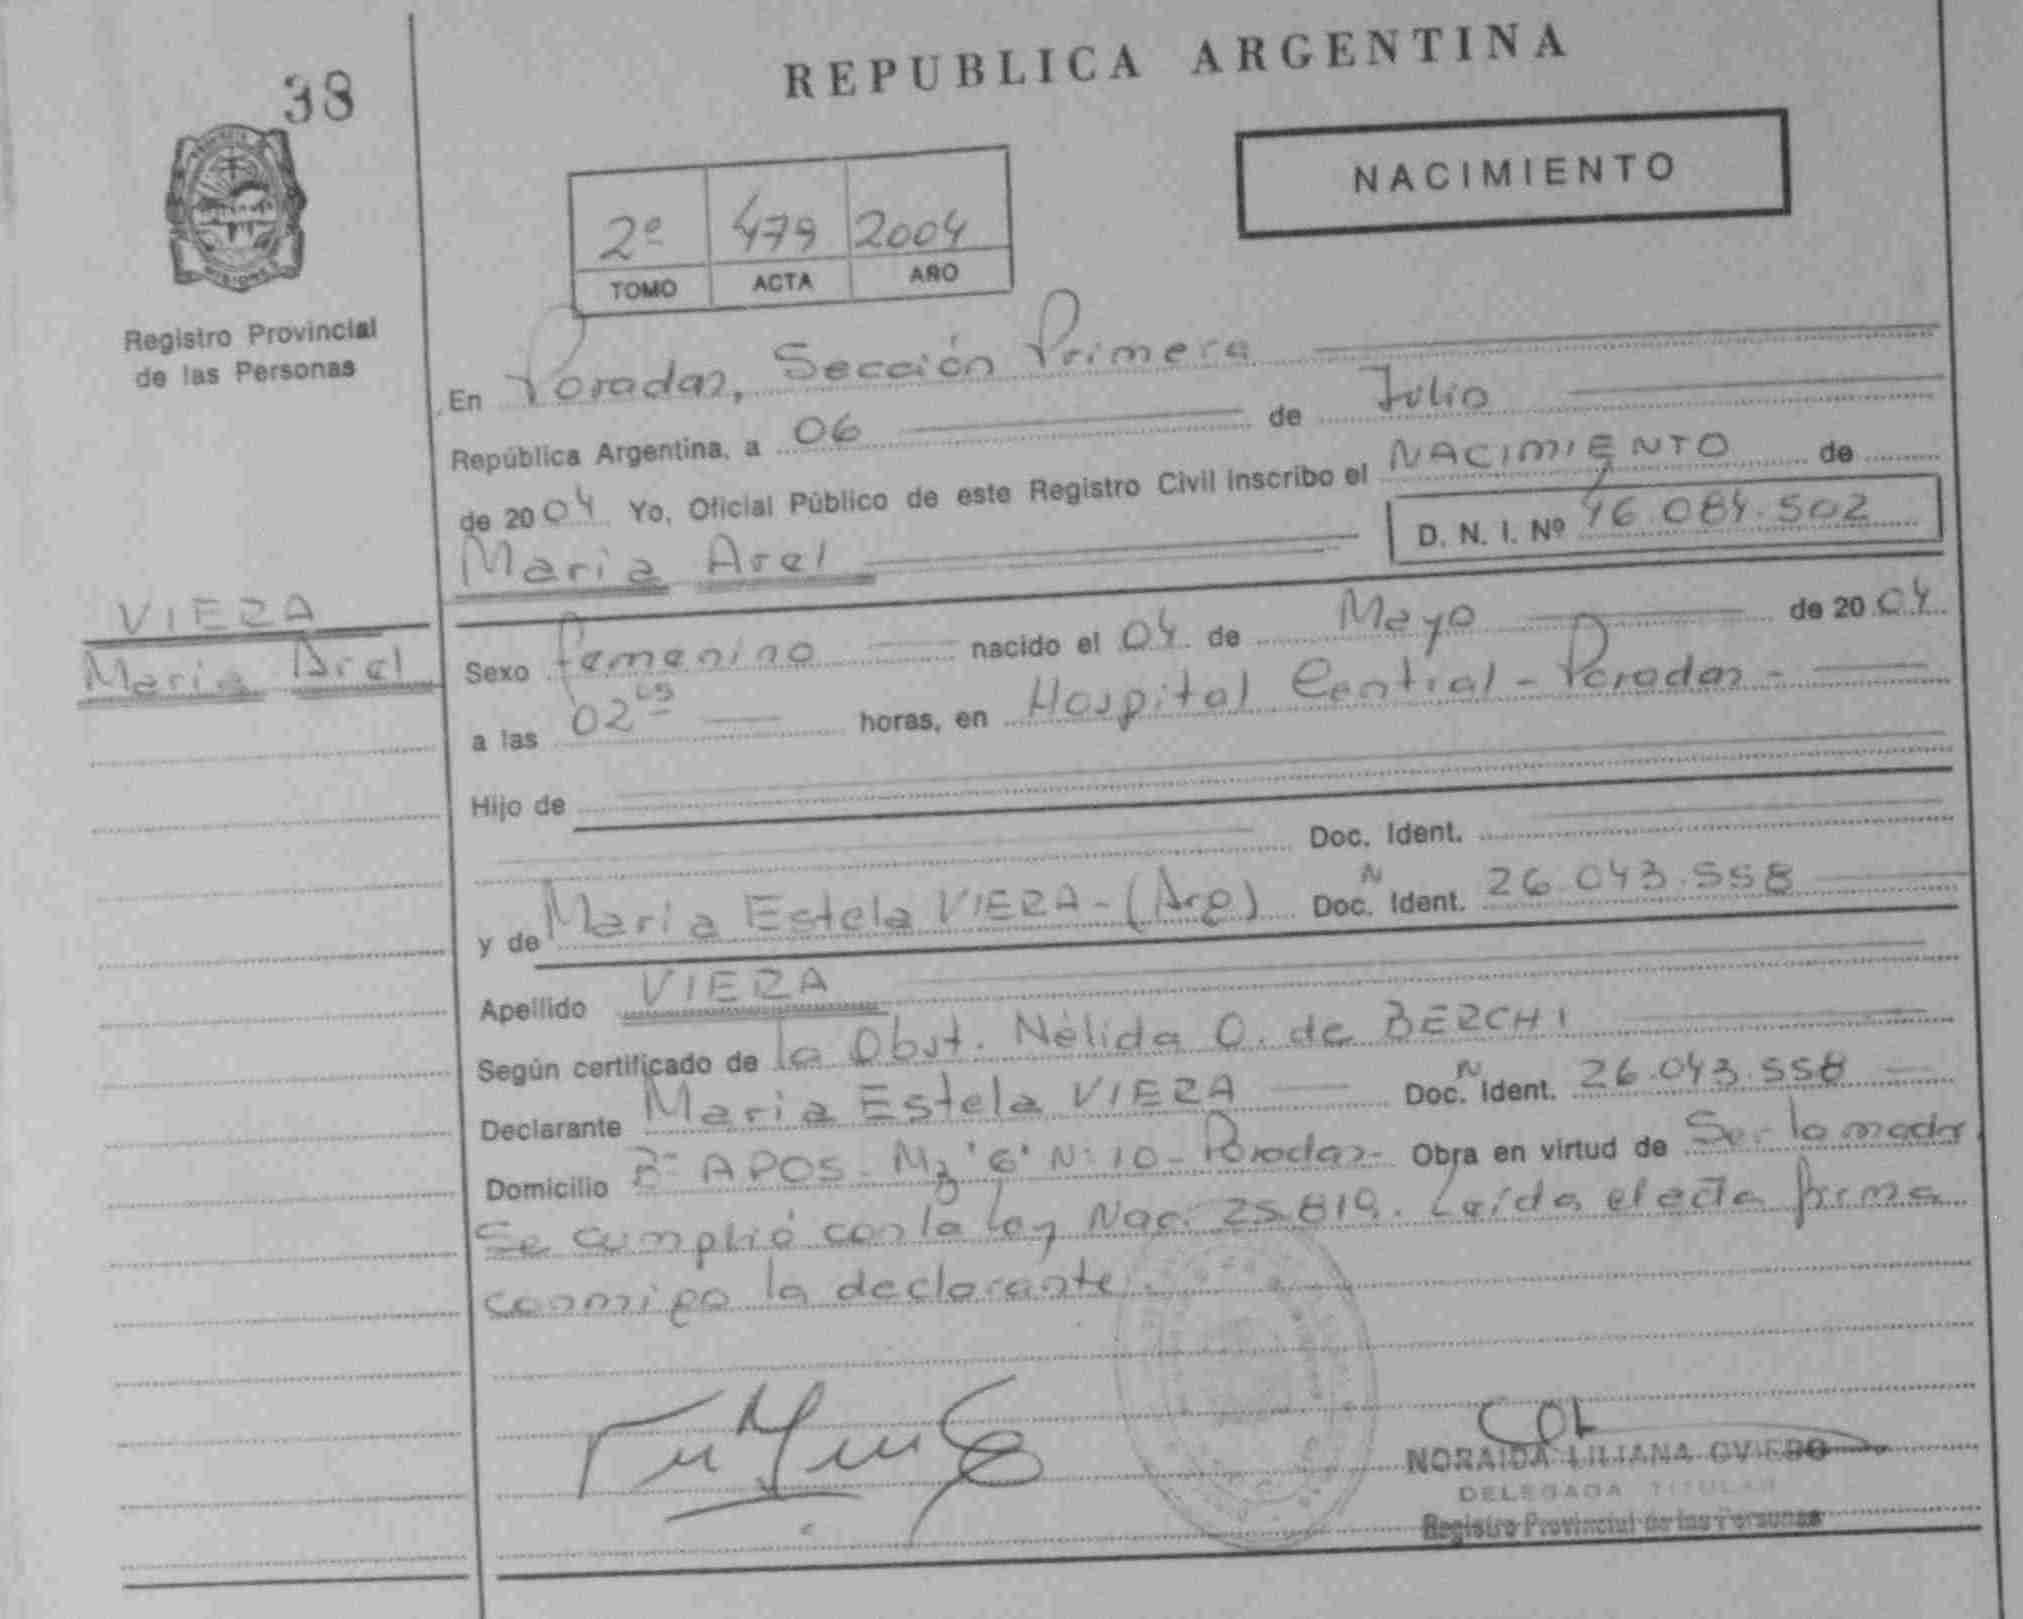 38
REPUBLICA ARGENTINA
NACIMIENTO
2º 479 2004
TOMO ACTA AÑO
Registro Provincial
de las Personas
En Posadas, Sección Primera
República Argentina, a 06 de Julio
de 2004 Yo, Oficial Público de este Registro Civil inscribo el NACIMIENTO de
D. N. I. Nº 46.084.502
Maria Asel
VIERA
Maria Asel
Sexo femenino nacido el 04 de Mayo de 2004
a las 02 horas, en Hospital Central - Posadas -
Hijo de
Doc. Ident.
y de Maria Estela VIERA - (Arg) Doc. N Ident. 26.043.558
Apellido VIERA
Según certificado de la Obst. Nélida O. de BERCHI
Declarante Maria Estela VIERA Doc. N Ident. 26.043.558
Domicilio Bº APOS - Mz '6' Nº 10 - Posadas - Obra en virtud de Ser la madre
Se cumplió con la Ley Nac. 25.819. Leída el acta firma
conmigo la declarante.
NORAIDA LILIANA OVIEDO
DELEGADA TITULAR
Registro Provincial de las Personas